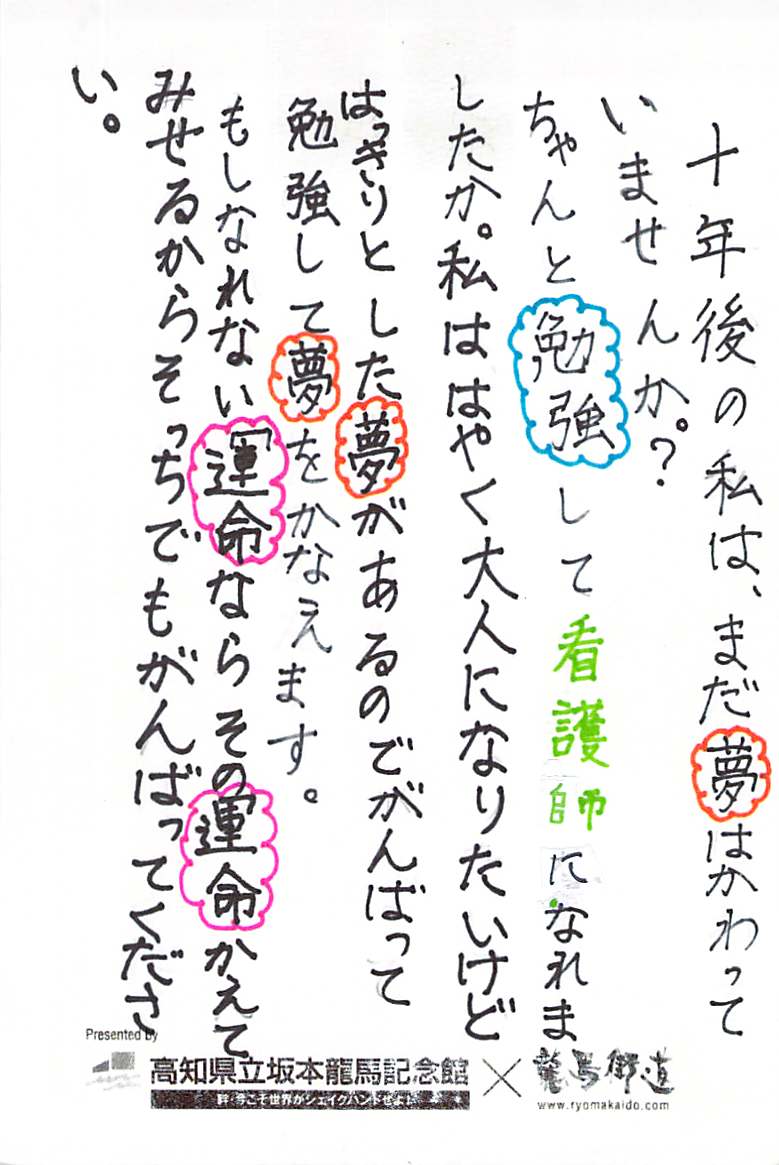 十年後の私は、まだ夢はかわって
いませんか。?
ちゃんと勉強して看護師になれま
したか。私ははやく大人になりたいけど
はっきりとした夢があるのでがんばって
勉強して夢をかなえます。
もしなれない運命ならその運命かえて
みせるからそっちでもがんばってくださ
い。
Presented by
高知県立坂本龍馬記念館×龍馬街道
絆・今こそ世界がシェイクハンドせよ!
www.ryomakaido.com